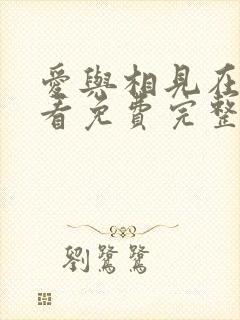 愛與相見在
看免費完整
劉鷺鷺